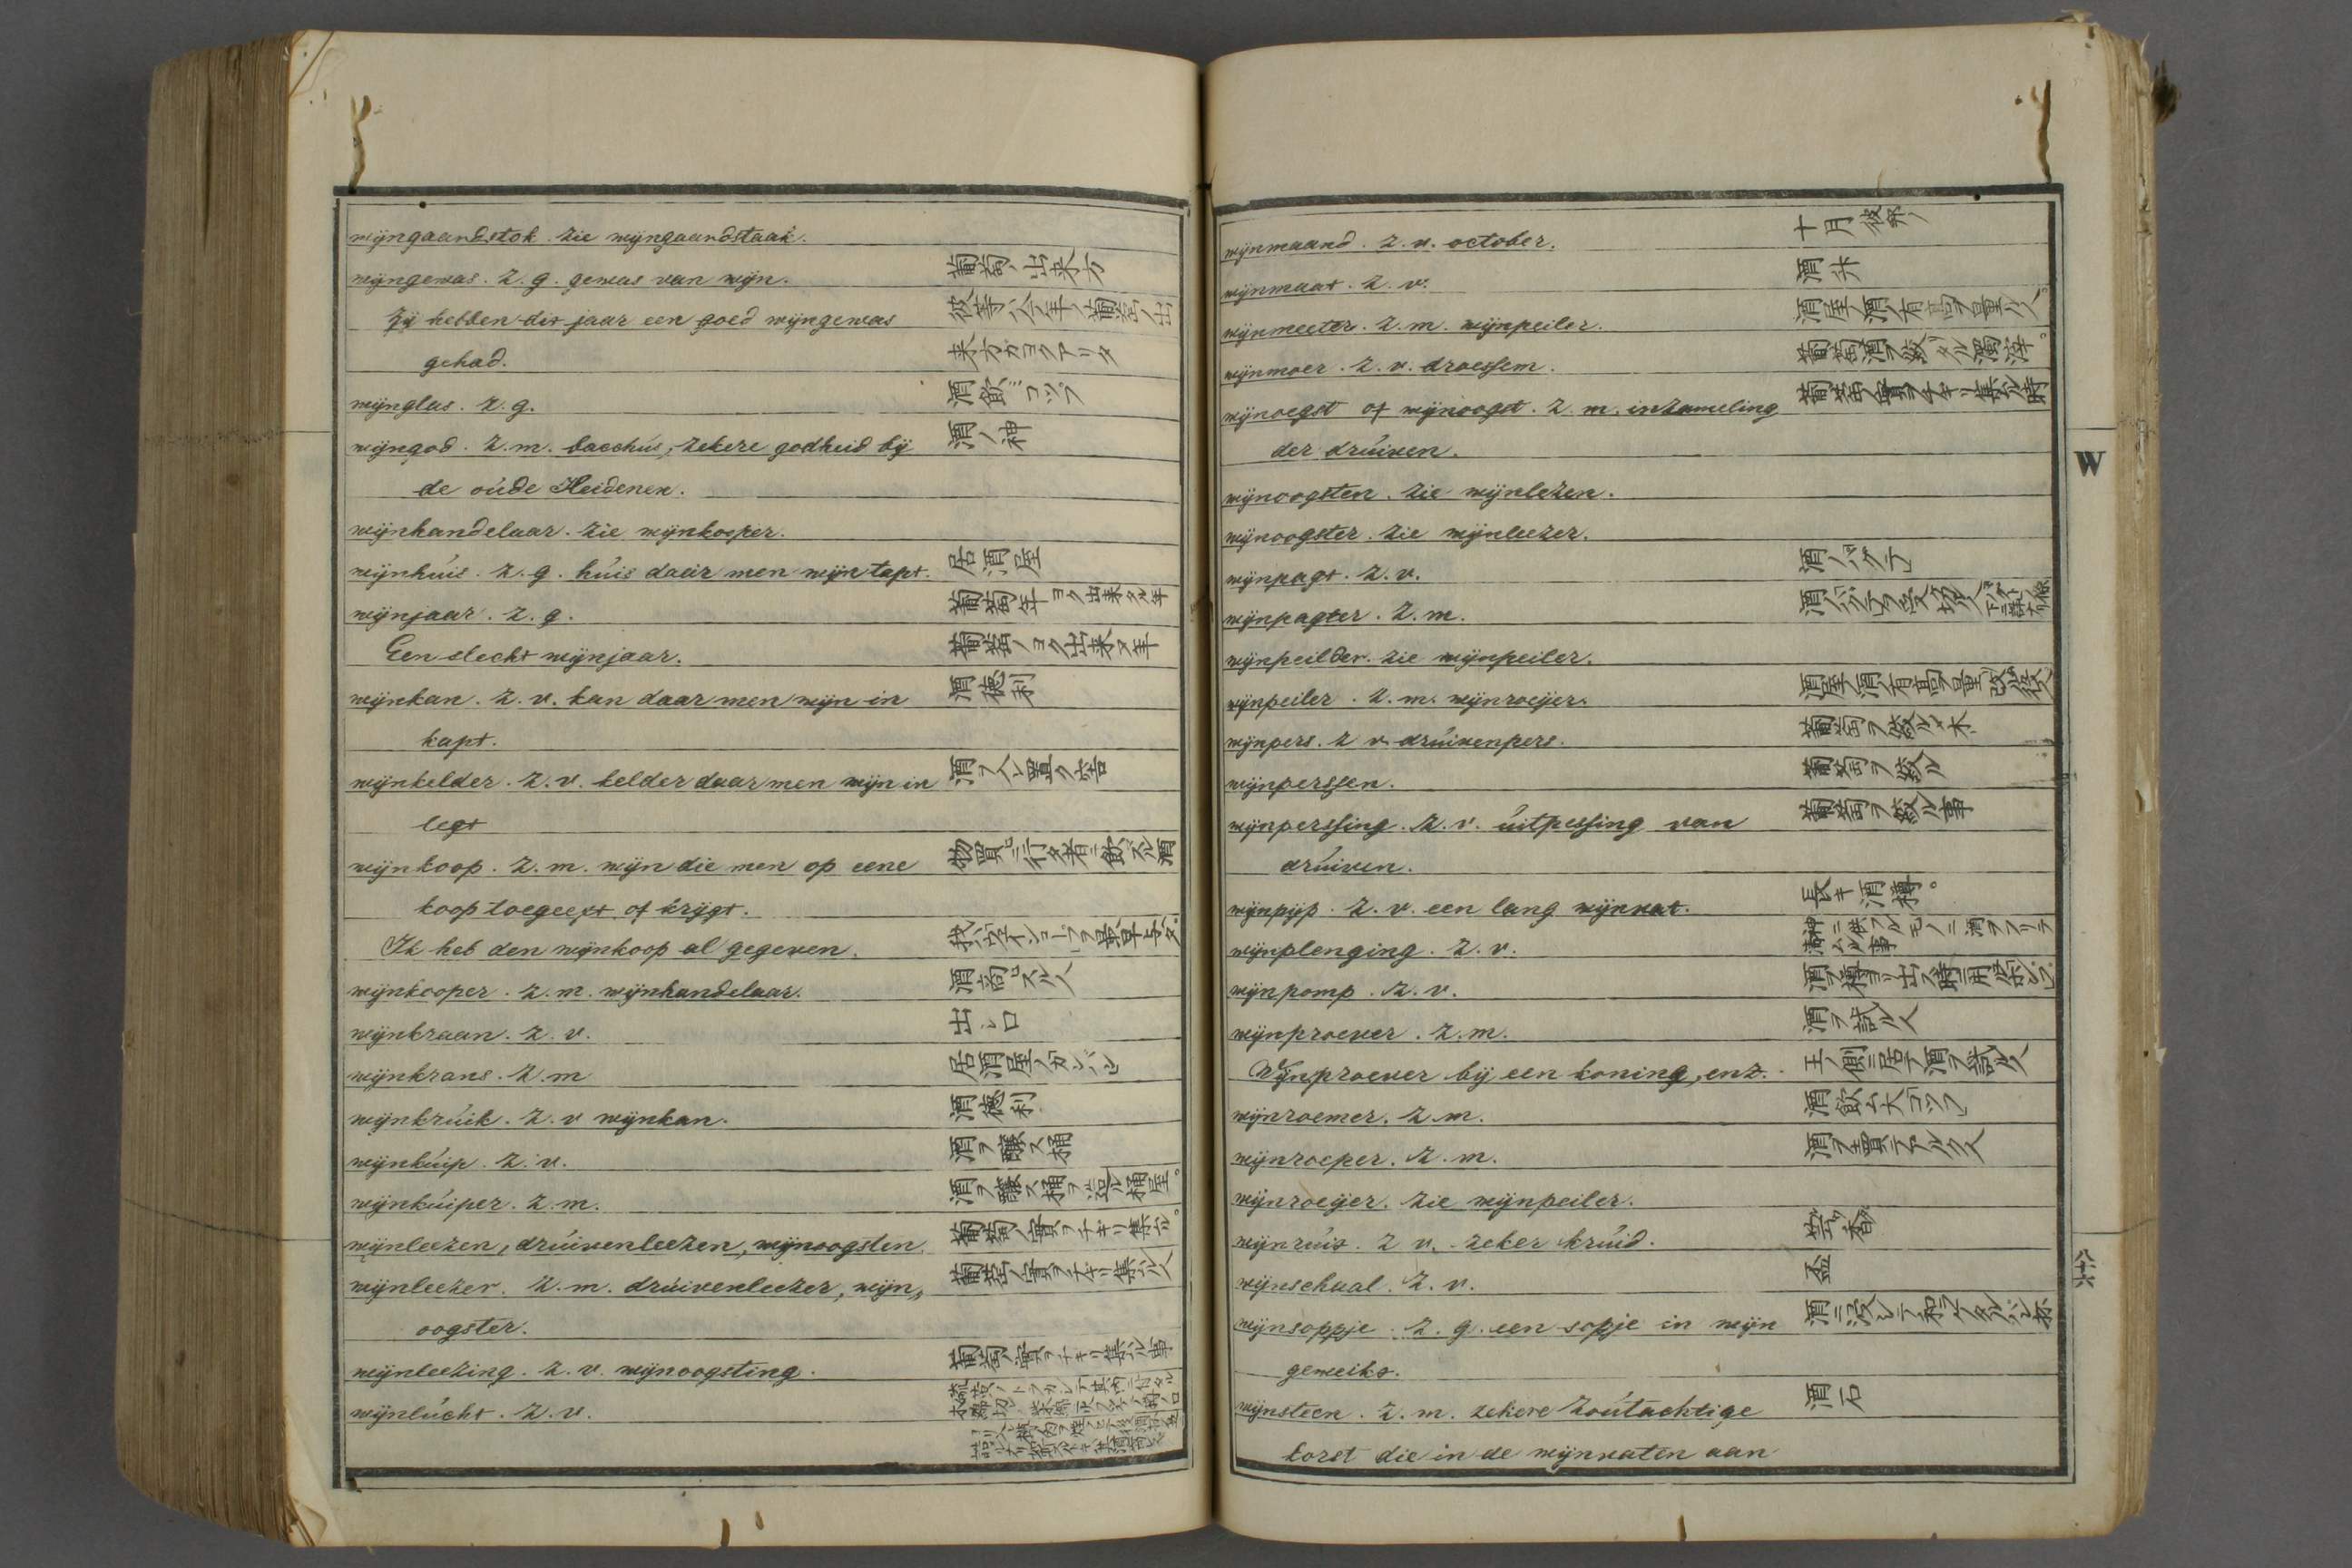 wijngaardstok. zie wijngaardstaak.
wijngewas. z. g. gewas van wijn. 葡萄ノ出来方
Zij hebben dit jaar een goed wijngewas 彼等ハ今年ノ葡萄ノ出
gehad. 来方ガヨクアリタ
wijnglas. z. g. 酒飲コップ
wijngod. z. m. bacchús, zekere godheid bij 酒ノ神
de oúde Heidenen.
wijnhandelaar. zie wijnkooper.
wijnhúis. z. g. húis daar men wijn tapt. 居酒屋
wijnjaar. z. g. 葡萄年 ヨク出来タル年
Een slecht wijnjaar. 葡萄ノヨク出来ヌ年
wijnkan. z. v. kan daar men wijn in 酒徳利
tapt.
wijnkelder. z. v. kelder daar men wijn in 酒ヲ入レ置ク
legt
wijnkoop. z. m. wijn die men op eene 物買ニ行タ者ニ飲スル酒
koop toegeeft of krijgt.
Ik heb den wijnkoop al gegeven.
wijnkooper. z. m. wijnhandelaar. 酒商ヒスル人
wijnkraan. z. v. 出シ口
wijnkrans. z. m 居酒屋ノカンバン
wijnkrúik. z. v wijnkan. 酒徳利
wijnkúip. z. v. 酒ヲ醸ス桶
wijnkúiper. z. m. 酒ヲ醸ス桶ヲ造ル桶屋。
wijnleezen, drúivenleezen, wijnoogsten. 葡萄ノ實ヲチギリ集ル。
wijnleezer. z. m. drúivenleezer, wijn„ 葡萄ノ實ヲチギリ集ル人
oogster.
wijnleezing. z. v. wijnoogsting. 葡萄ノ實ヲチギリ集ル事
wijnlúcht. z. v.
wijnmaand. z. v. october. 十月
wijnmaat. z. v. 酒升
wijnmeeter. z. m. wijnpeiler. 酒屋ノ酒ノ有高ヲ量ル人。
wijnmoer. z. v. droessem. 葡萄酒ヲ絞リタル濁滓。
wijnoegst of wijnoogst. z. m. inzameling 葡萄ノ實ヲチギリ集ル時
der drúiven.
wijnoogsten. zie wijnlezen.
wijnoogster. zie wijnleezer.
wijnpagt. z. v. 酒ノパクテ
wijnpagter. z. m.
wijnpeilder. zie wijnpeiler.
wijnpeiler. z. m. wijnroeijer. 酒屋ノ酒ノ有高ヲ量リ改ル役人
wijnpers. z v. drúivenpers. 葡萄ヲ絞ル〆木
wijnperssen. 葡萄ヲ絞ル
wijnperssing. z. v. úitpessing van 葡萄ヲ絞ル事
drúiven.
wijnpijp. z. v. een lang wijnvat. 長キ酒樽。
wijnplenging. z. v.
wijnpomp. z. v.
wijnproever. z. m. 酒ヲ試ル人
Wijnproever bij een koning, enz. 王ノ側ニ居テ酒ヲ試ル人
wijnroemer. z. m. 酒飲ム大コップ
wijnroeper. z. m. 酒ヲ賣テアルク人
wijnroeijer. zie wijnpeiler.
wijnrúit. z v. zeker krúid. 芸香
wijnschaal. z. v. 盃
wijnsoppje. z. g. een sopje in wijn
geweikt.
wijnsteen. z. m. zekere zoútachtige 酒石
korst die in de wijnvaten aan
W